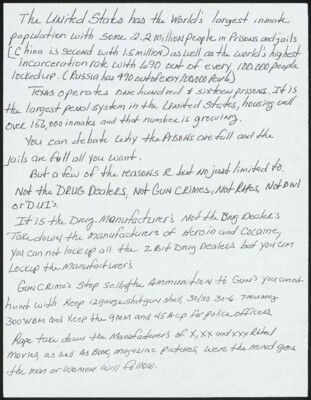 The United States has the World's largest inmate
population with some 2.2 million people in Prisons and jails
(China is second with 1.5 million) as well as the world's highest
incarceration rate with 690 out of every 100,000 people
locked up. (Russia has 490 out of every 100,000 people)
Texas operates one hundred & sixteen prisons. It is
the largest penal system in the United States, housing well
over 156,000 inmates and that number is growing.
You can debate why the Prisons are full and the
jails are full all you want.
But a few of the reasons R but No just limited to.
Not the DRUG Dealers, Not GUN CRIMES, Not Rapes, Not DWI
or D.U.I's.
It is the Drug Manufacturer's Not the Drug Dealers
Take down the Manufacturers of Heroin and Cocaine,
You can not lock up all the 2 Bit Drug Dealers but you can
Lock up the Manufacturer's
Gun Crime's Stop selling the Ammunition to Gun's you cannot
hunt with Keep 12 gauge shotgun shell, 30/30 30-6 7mm mag
300 WBM and Keep the 9MM and 45 ACP for police officers.
Rape take down the Manufacturers of X, XX and XXX Rated
Movies as well As Book, magazine pictures, were the Mind goes
the man or Women will follow.